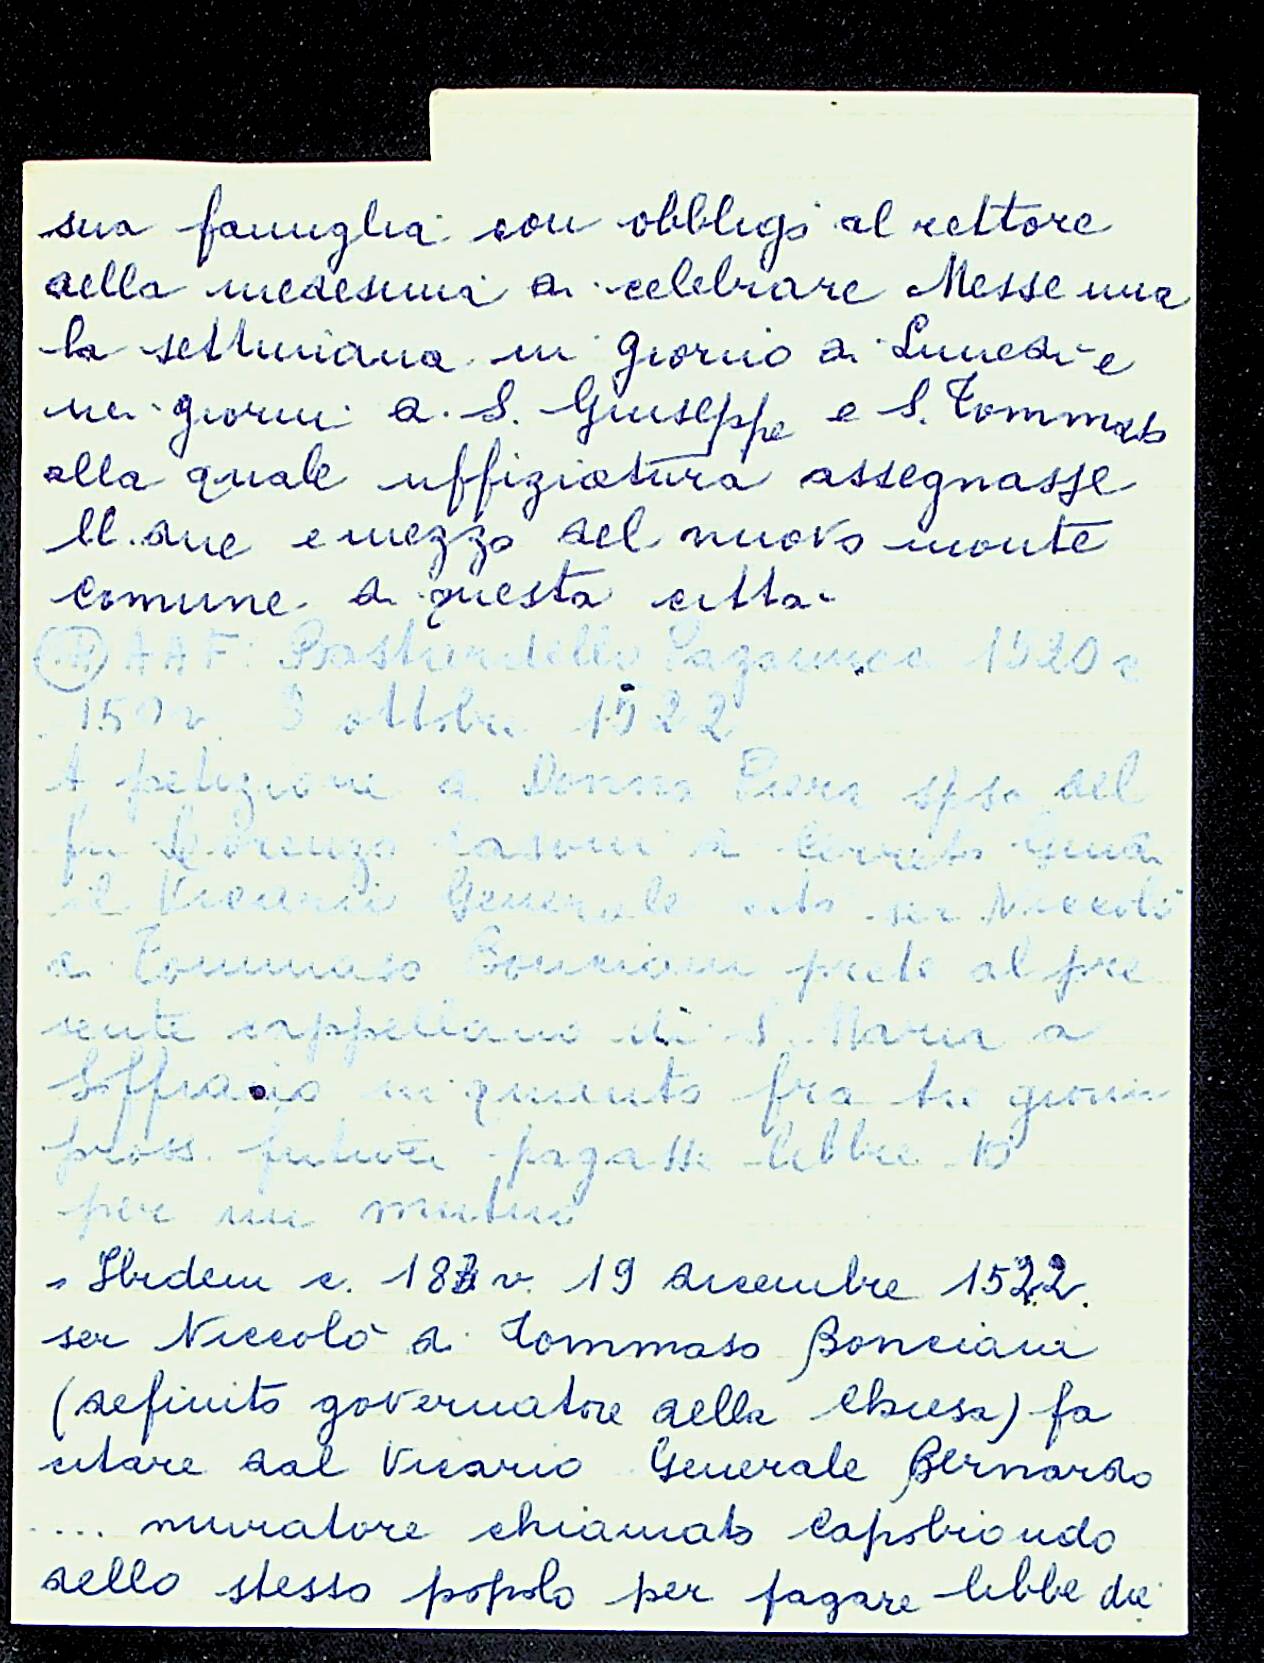 sua famiglia con obbligo al rettore
della medesima di celebrare Messe una
la settimana in giorno di Lunedì e
nei giorni di S. Giuseppe e S. Tommaso
alla quale uffiziatura assegnasse
ll. due e mezzo del nuovo monte
comune di questa città.
AAF: Bastardello Pagan 1520 a
150 v. 3 ottobre 1522
A petizione di Donna Piera sposa del
fu Lorenzo di Cerreto Guidi
il Vicario Generale citò ser Niccolò
di Tommaso Bonciani prete al pre
sente cappellano di S. Maria a
Soffiano in quanto fra tre giorni
pross. futuri pagasse libbre 10
per un mutuo
" Ibidem c. 183 v. 19 dicembre 1522.
ser Niccolò di Tommaso Bonciani
(definito governatore della Chiesa) fa
citare dal Vicario Generale Bernardo
.... muratore chiamato Capobiondo
dello stesso popolo per pagare libbe due